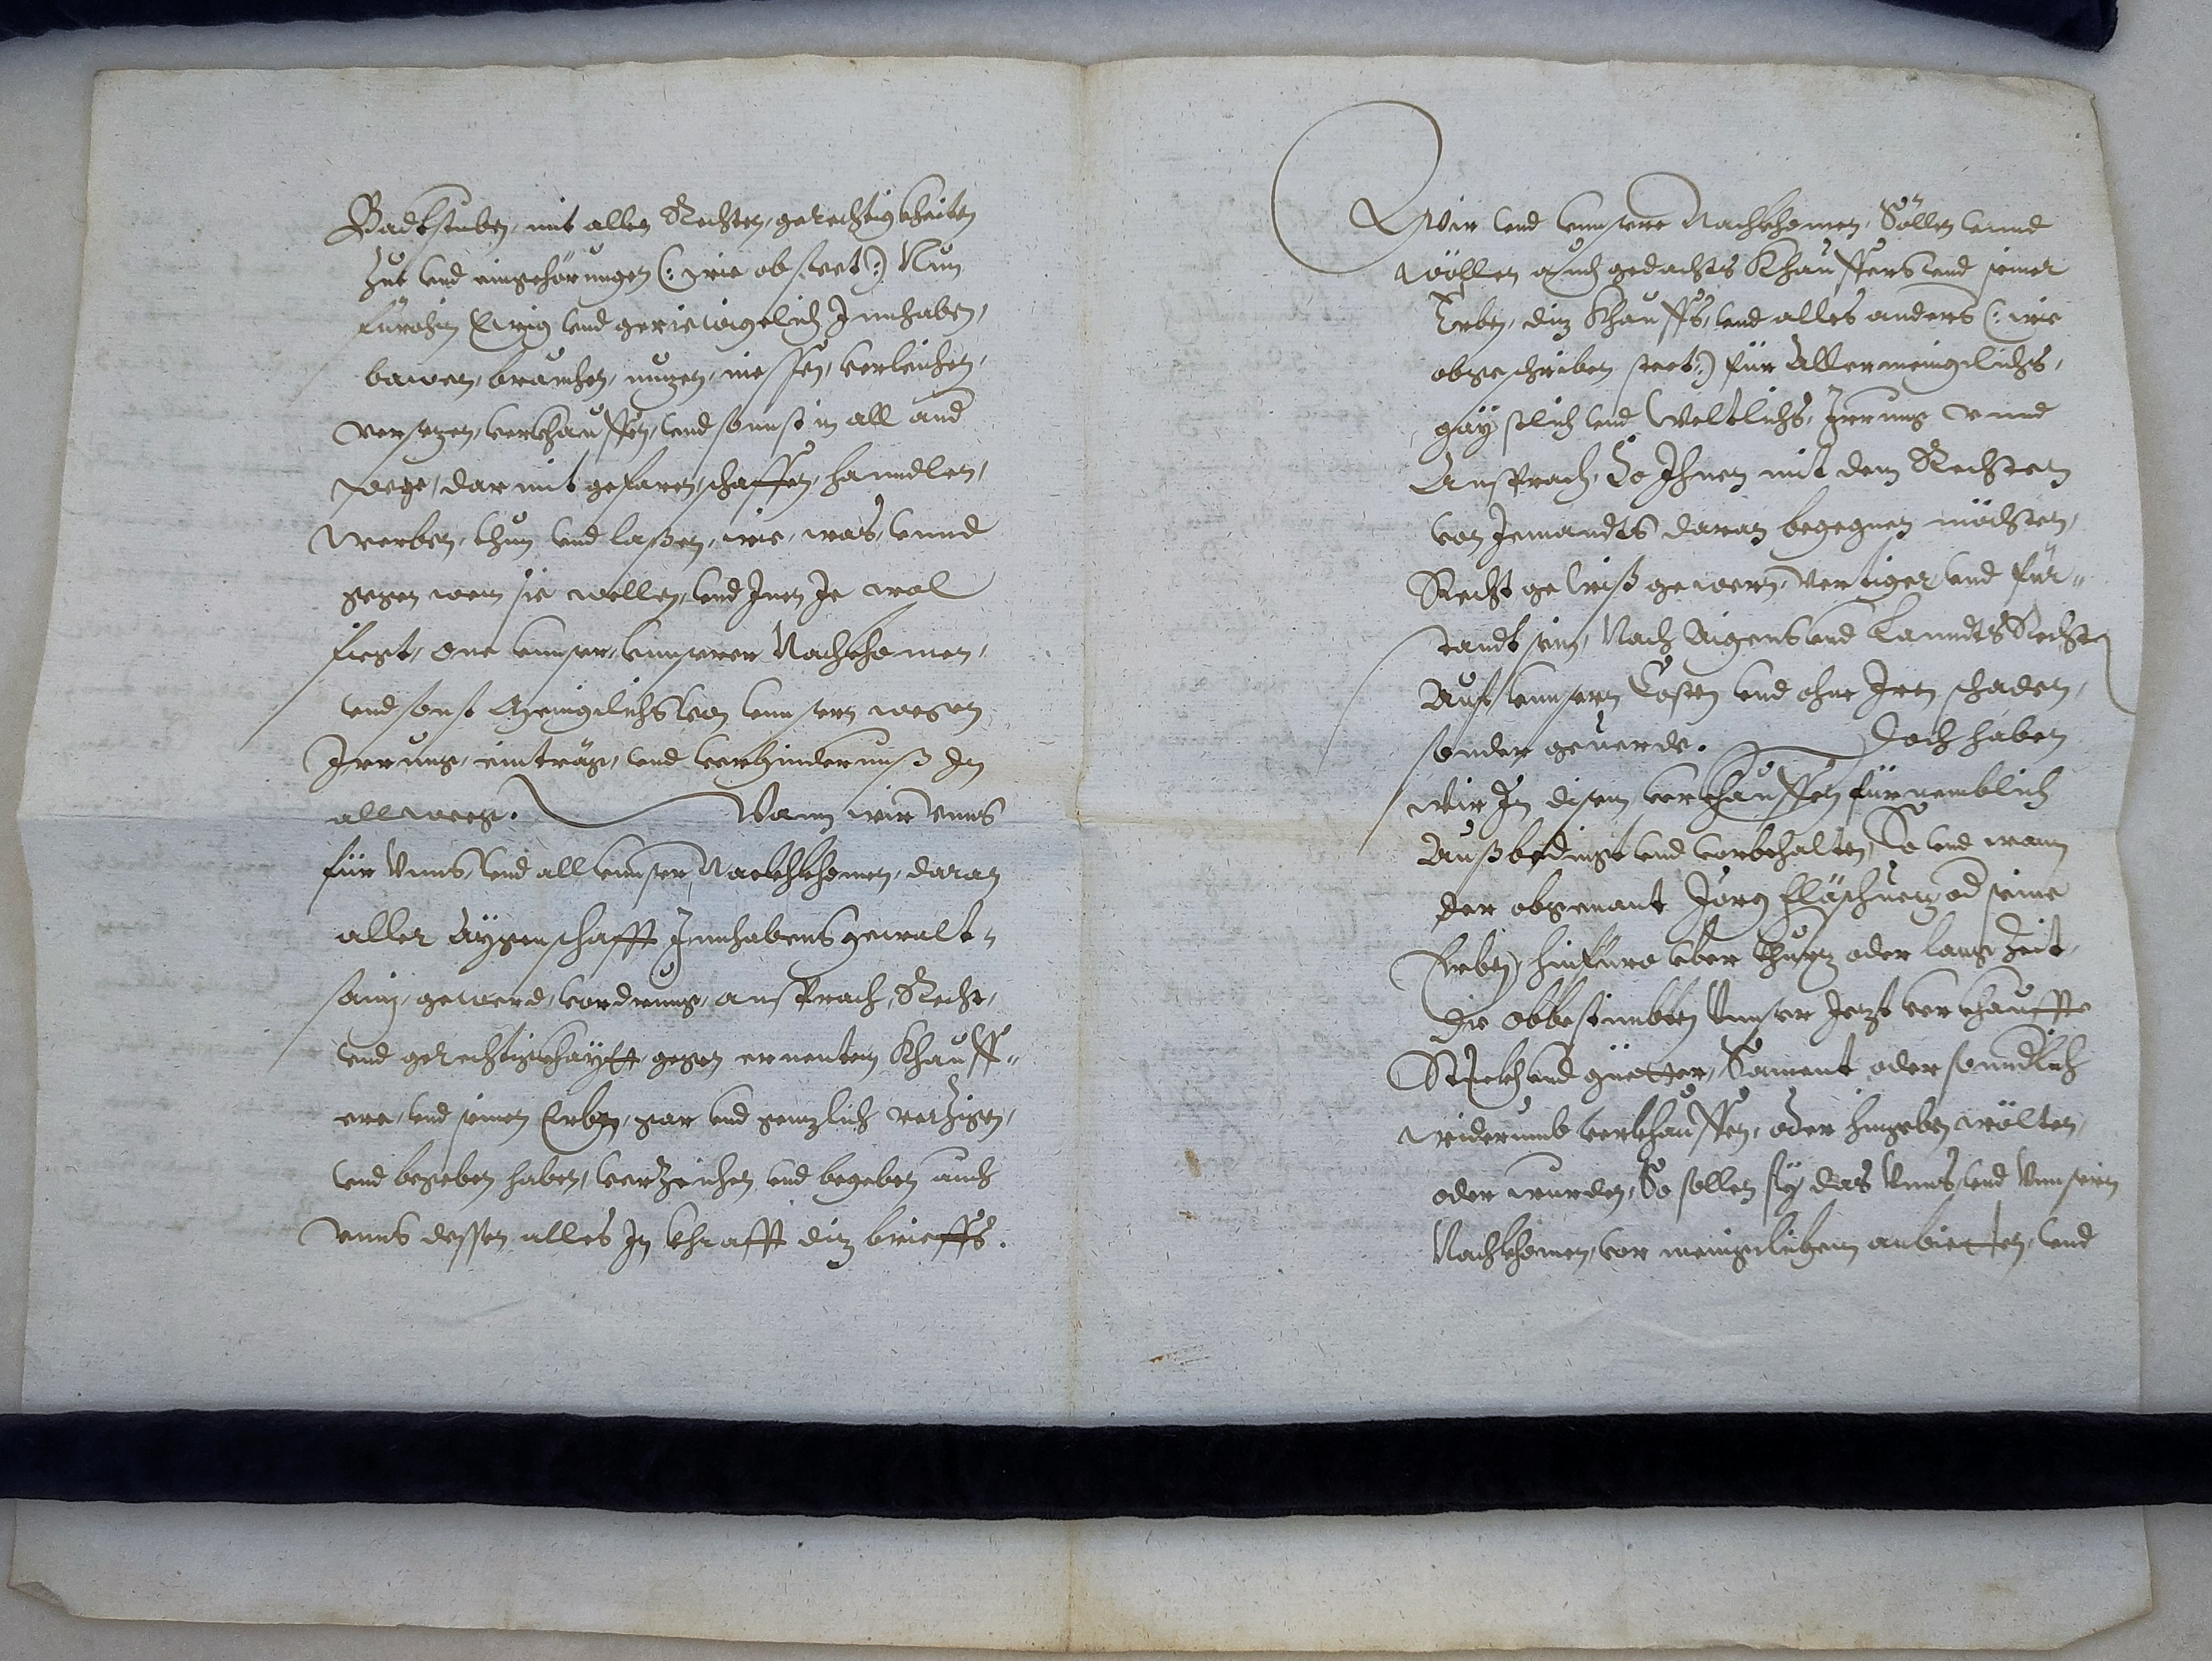 Badtstuben, mit allen Rechten, gerechtigkheiten
Zue und eingehörungen (: wie obsteet :) Nun
fürohin Ewig und geriewigelich Innhaben,
bawen, brauchen, nuzen, niessen, verleichen,
versezen, verkhauffen, und sonnst in all and
wege, darmit gefaren, schaffen, hanndlen,
werben, thun und laßen, wie, was, unnd
gegen wem sie wellen, und Inen Je wol
fiegt, one unnser, unnserer Nachkhomen,
und sonst Meingclichs von unnsern wegen
Irrung, eintrag, und verhindernuß In
allweeg. Wann wir unns
für Unns, und all unnser Nachkhomen, daran
aller Aygenschafft Innhabens gewalt-
sam, gewerd, vordrung, ansprach, Recht,
und gerechtigkhaytt, gegen ernentem Khauff-
ere, und seinen Erben, gar und genzlich verzigen,
und begeben haben, verzeichen und begeben auch
unns dessen alles In khrafft diz brieffs.
Wir und unnsere Nachkhomen, Söllen unnd
wöllen auch gedachts Khauffers und seiner
Erben, diz Khauffs, und alles anders (: wie
obgeschriben steet :) für Allermeingclichs,
gaystlich und Weltlichs, Irrung unnd
Ansprach, So Ihnen mit dem Rechten
von Jemandts daran begegnen möchten,
Recht gewiß gewern, Vertiger und für-
tandt sein, Nach Aigens und Lanndts Rechte
Auf unnsern Costen und ohne Iren schaden,
sonder geuerde. Doch haben
wir In disem verkhauffen fürnemblich
Außbedingt und vorbehalten, So und wann
der obgenant Jörg Fläschuez od seine
Erben, hinfüro über khurz oder lang Zeit,
die obbestimbten Unnser Jezt verkhauffte
Stuckh und güetter, Sament oder sonndlich
widerumb verkhauffen, oder hingeben wölten,
oder wurden, So sollen sy das Unns, und Unnsern
Nachkhomen, vor meingclichem anbietten, und